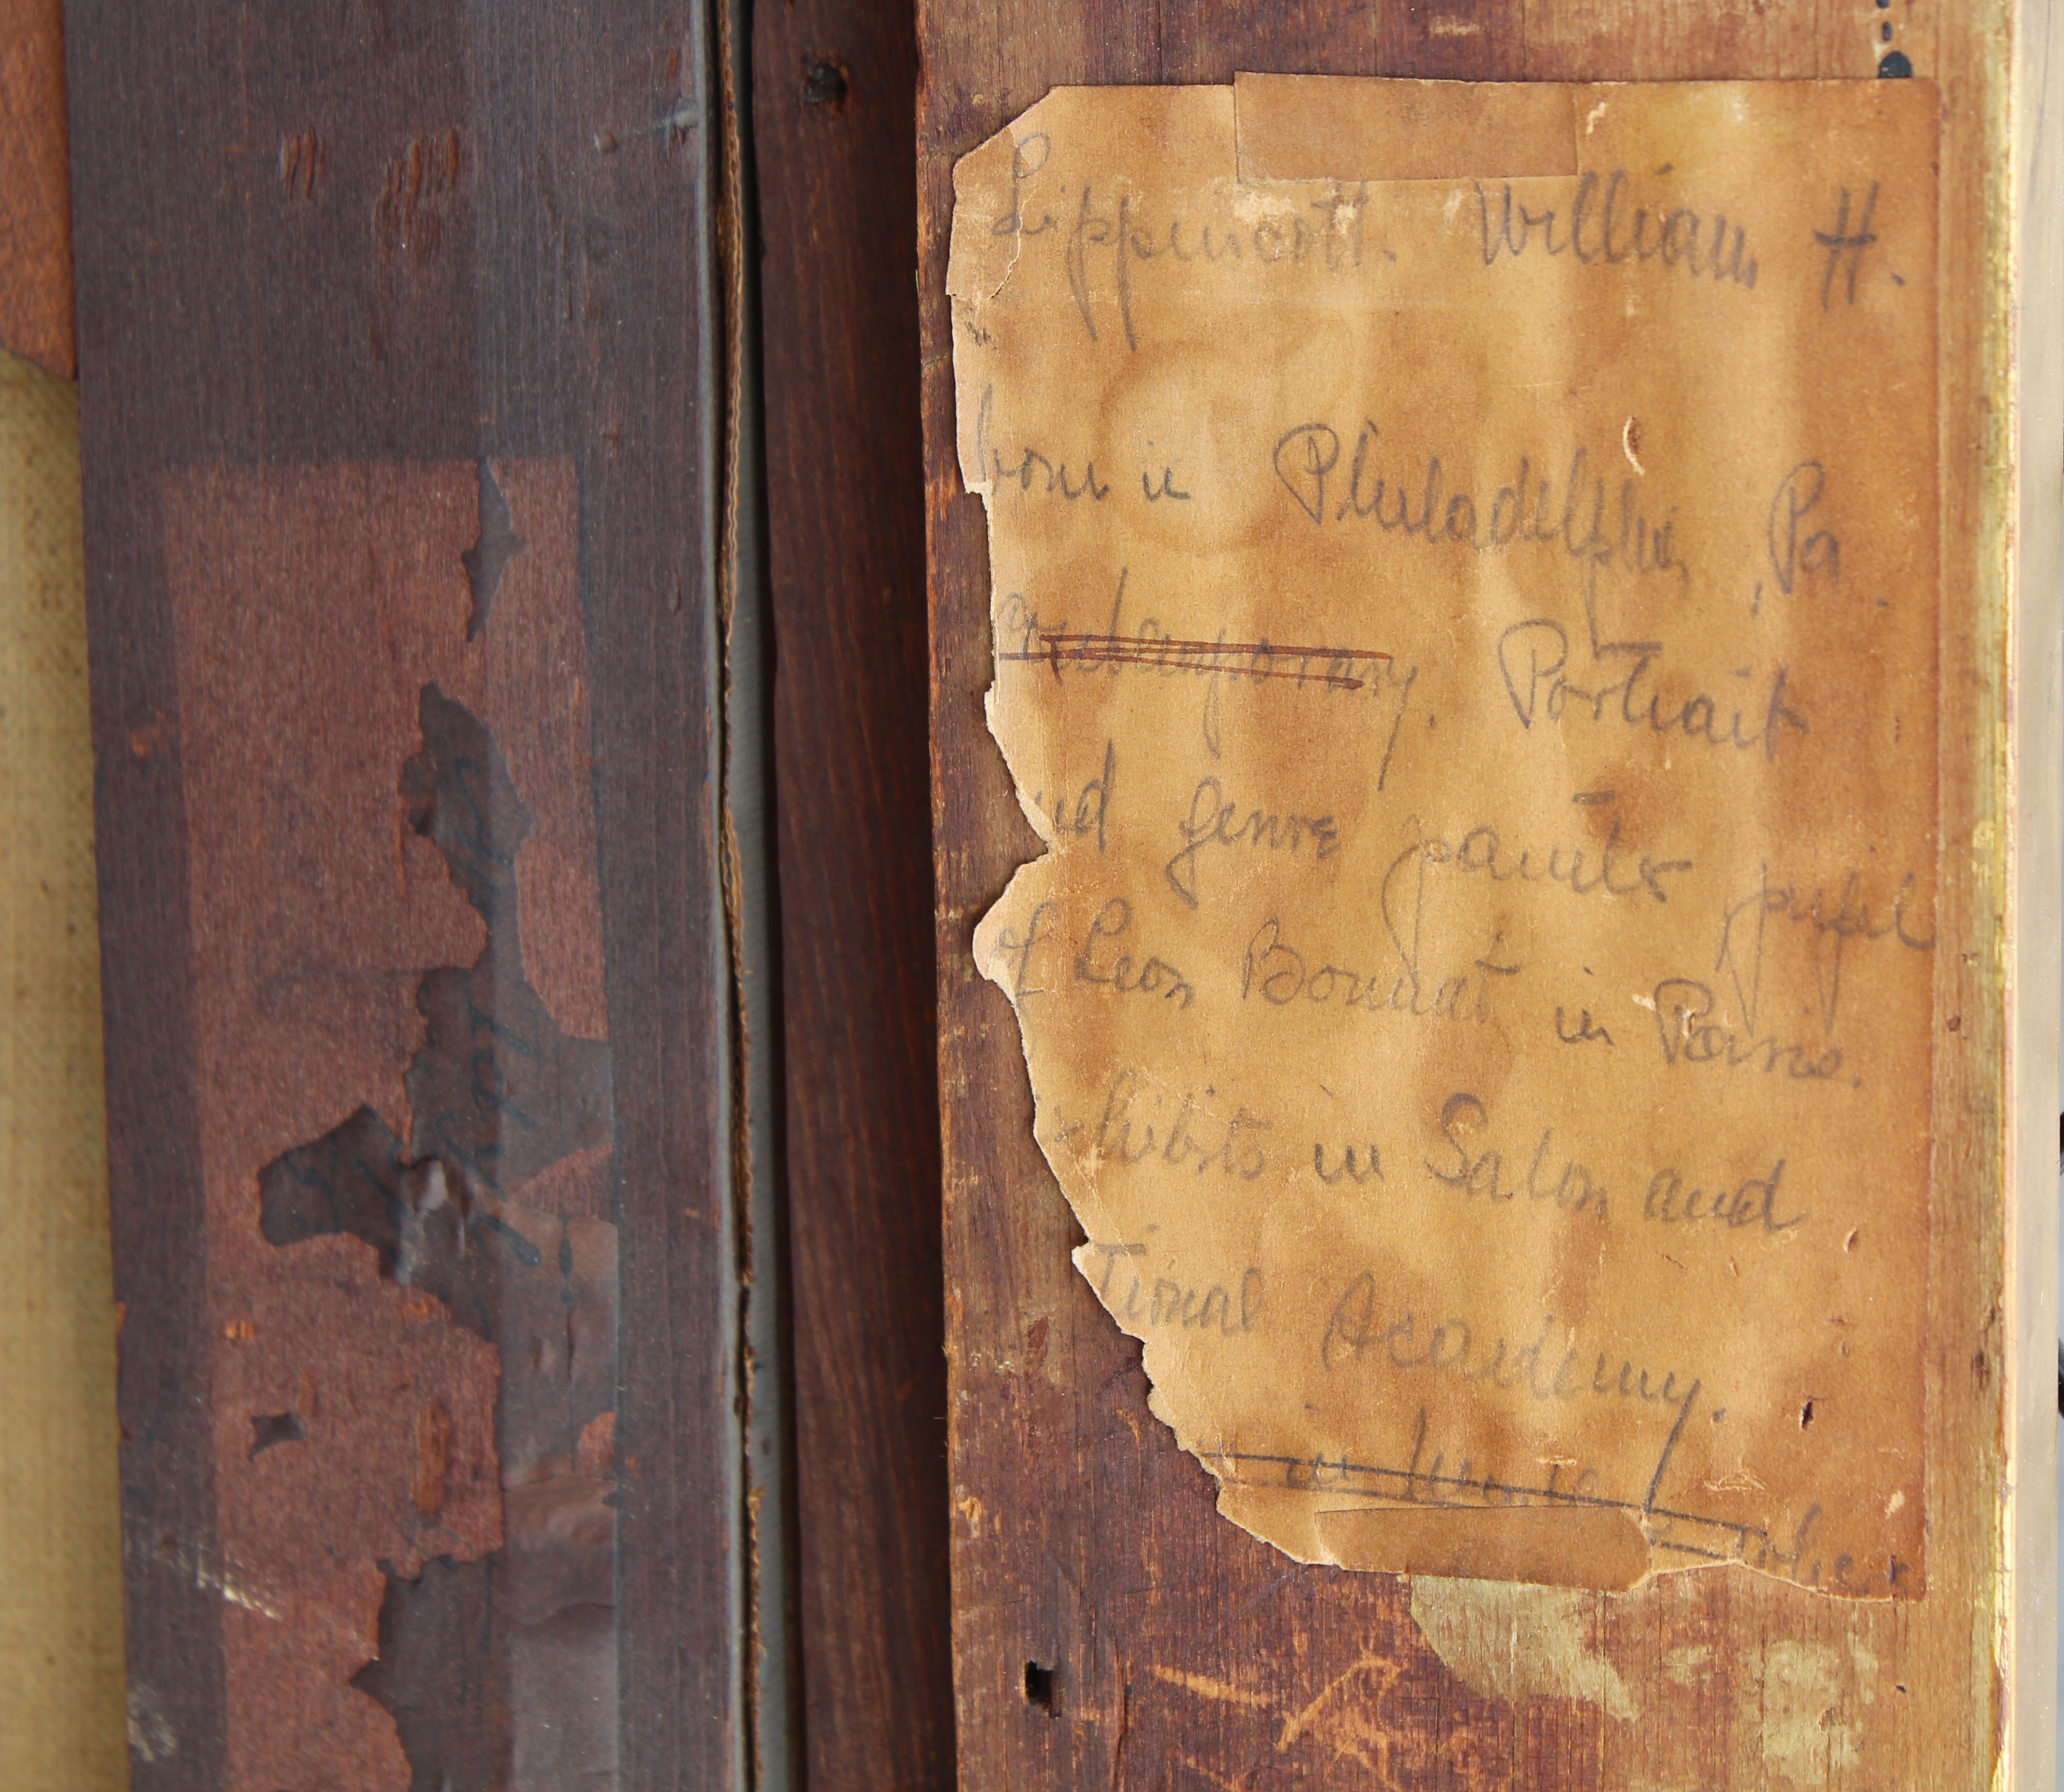 Lippincott. William H.
born in Philadelphia, Pa
Contemporary. Portrait
nd genre painter pupil
of Leon Bonnat in Paris.
xhibits in Salon and
tional Academy.
in